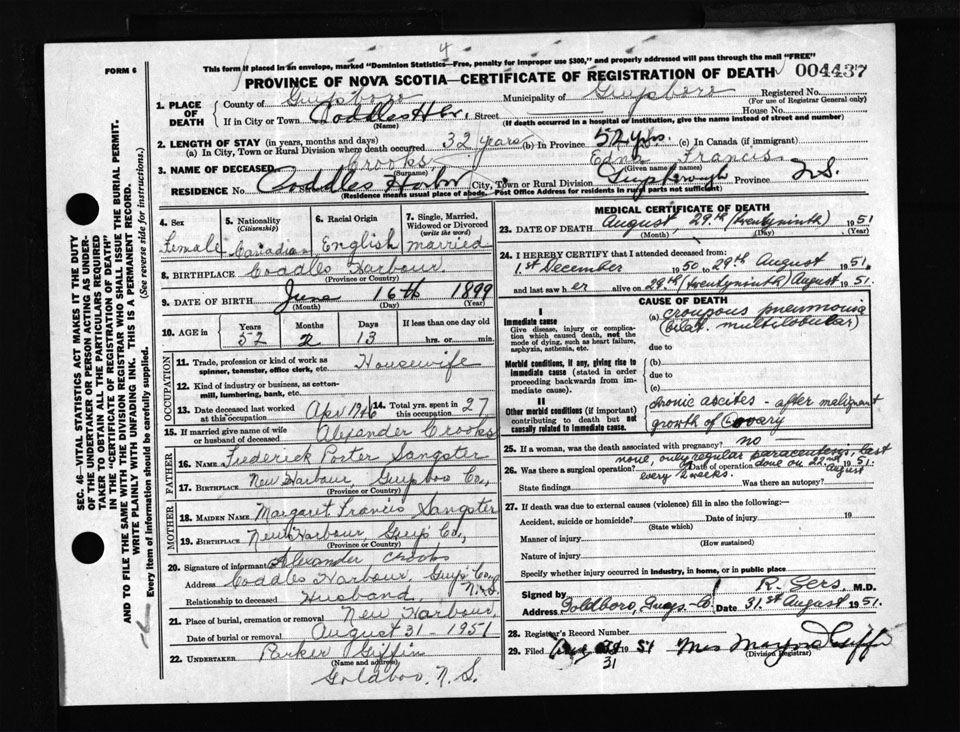 4
FORM 6
This form if placed in an envelope, marked "Dominion Statistics—Free, penalty for improper use $300," and properly addressed will pass through the mail "FREE"
PROVINCE OF NOVA SCOTIA—CERTIFICATE OF REGISTRATION OF DEATH
004437
1. PLACE OF DEATH
County of Guysboro Municipality of Guysboro Registered No.
(For use of Registrar General only)
If in City or Town Coddles Hbr. Street House No.
(Name) (If death occurred in a hospital or institution, give the name instead of street and number)
2. LENGTH OF STAY (in years, months and days)
(a) In City, Town or Rural Division where death occurred 32 years (b) In Province 52 yrs. (c) In Canada (if immigrant)
3. NAME OF DECEASED Crooks, Edna Francis
(Surname) (Given name or names)
RESIDENCE No. Coddles Harbor City, Town or Rural Division Guysborough Province N.S.
(Residence means usual place of abode. Post Office Address for residents in rural parts not sufficient)
4. Sex
Female
5. Nationality
(Citizenship)
Canadian
6. Racial Origin
English
7. Single, Married, Widowed or Divorced
(write the word)
married
8. BIRTHPLACE Coddles Harbour.
(Province or Country)
9. DATE OF BIRTH June 16th 1899
(Month) (Day) (Year)
10. AGE in Years Months Days If less than one day old
52 2 13 hrs. or min.
OCCUPATION
11. Trade, profession or kind of work as spinner, teamster, office clerk, etc. Housewife
12. Kind of industry or business, as cotton-mill, lumbering, bank, etc.
13. Date deceased last worked at this occupation
14. Total yrs. spent in this occupation 27
15. If married give name of wife or husband of deceased Alexander Crooks
FATHER
16. Name Frederick Porter Sangster
17. Birthplace New Harbour, Guysboro Co,
(Province or Country)
MOTHER
18. Maiden Name Margaret Francis Sangster
19. Birthplace New Harbour, Guys Co,
(Province or Country)
20. Signature of informant Alexander Crooks
Address Coddles Harbour, Guys Co, N.S
Relationship to deceased Husband
21. Place of burial, cremation or removal New Harbour,
Date of burial or removal August 31 - 1951
22. UNDERTAKER Parker Giffin
(Name and address)
Goldboro, N.S.
MEDICAL CERTIFICATE OF DEATH
23. DATE OF DEATH August, 29th (twentyninth) 1951
(Month) (Day) (Year)
24. I HEREBY CERTIFY that I attended deceased from:
1st December 1950 to 29th August 1951.
and last saw her alive on 29th (twentyninth) August 1951.
I
Immediate cause
Give disease, injury or complication which caused death, not the mode of dying, such as heart failure, asphyxia, asthenia, etc.
Morbid conditions, if any, giving rise to immediate cause (stated in order proceeding backwards from immediate cause).
II
Other morbid conditions (if important) contributing to death but not causally related to immediate cause.
CAUSE OF DEATH
(a) croupous pneumonia
(bilat. multilobular)
due to
(b)
due to
(c)
chronic ascites - after malignant
growth of ovary
25. If a woman, was the death associated with pregnancy? no
none, only regular paracentesis, last
26. Was there a surgical operation? Date of operation done on 22nd August 1951.
every 2 weeks.
State findings Was there an autopsy?
27. If death was due to external causes (violence) fill in also the following:—
Accident, suicide or homicide? Date of injury 19
(State which)
Manner of injury
(How sustained)
Nature of injury
Specify whether injury occurred in Industry, in home, or in public place
Signed by R. Gers M.D.
Address Goldboro, Guys. Co Date 31.st August 1951.
28. Registrar's Record Number
29. Filed Aug 31 1951 Mrs
(Division Registrar)
SEC. 46—VITAL STATISTICS ACT MAKES IT THE DUTY
OF THE UNDERTAKER OR PERSON ACTING AS UNDER-
TAKER TO OBTAIN ALL THE PARTICULARS REQUIRED
IN THE "CERTIFICATE OF REGISTRATION OF DEATH"
AND TO FILE THE SAME WITH THE DIVISION REGISTRAR WHO SHALL ISSUE THE BURIAL PERMIT.
WRITE PLAINLY WITH UNFADING INK. THIS IS A PERMANENT RECORD.
Every item of information should be carefully supplied. (See reverse side for instructions.)